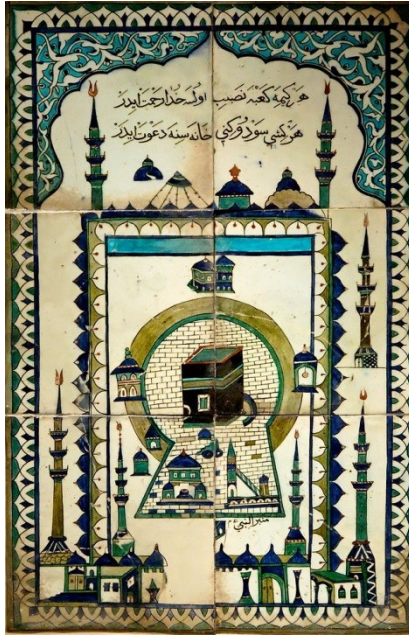 هر كيمه كعبه نصيب اولسه خدا رحمت ايدر
هر كشى سودوكنى خانه سنه دعوت ايدر
منبر النبي